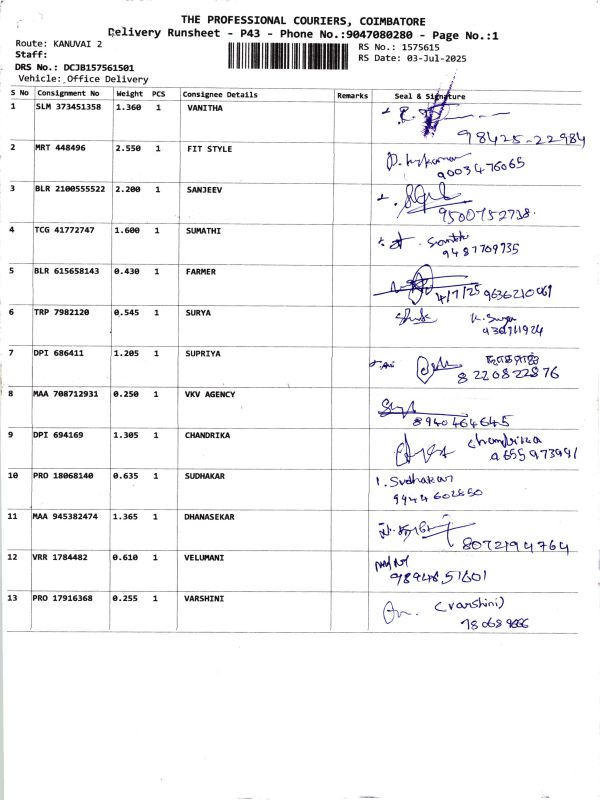 THE PROFESSIONAL COURIERS, COIMBATORE
Delivery Runsheet - P43 - Phone No.:9047080280 - Page No.:1
Route: KANUVAI 2
RS No.: 1575615
Staff:
RS Date: 03-Jul-2025
DRS No.: DCJB157561501
Vehicle: Office Delivery
S No Consignment No Weight PCS Consignee Details Remarks Seal & Signature
1 SLM 373451358 1.360 1 VANITHA
98425-22984
2 MRT 448496 2.550 1 FIT STYLE
9003476065
3 BLR 2100555522 2.200 1 SANJEEV
9500752738.
4 TCG 41772747 1.600 1 SUMATHI
9487709735
5 BLR 615658143 0.430 1 FARMER
4/7/25 9636210061
6 TRP 7982120 0.545 1 SURYA
K. Surya
7 DPI 686411 1.205 1 SUPRIYA
8220822876
8 MAA 708712931 0.250 1 VKV AGENCY
8940464645
9 DPI 694169 1.305 1 CHANDRIKA
Chandrika
9655973991
10 PRO 18068140 0.635 1 SUDHAKAR
1. Sudhakar
9444602850
11 MAA 945382474 1.365 1 DHANASEKAR
8072194764
12 VRR 1784482 0.610 1 VELUMANI
9894851601
13 PRO 17916368 0.255 1 VARSHINI
(varshini)